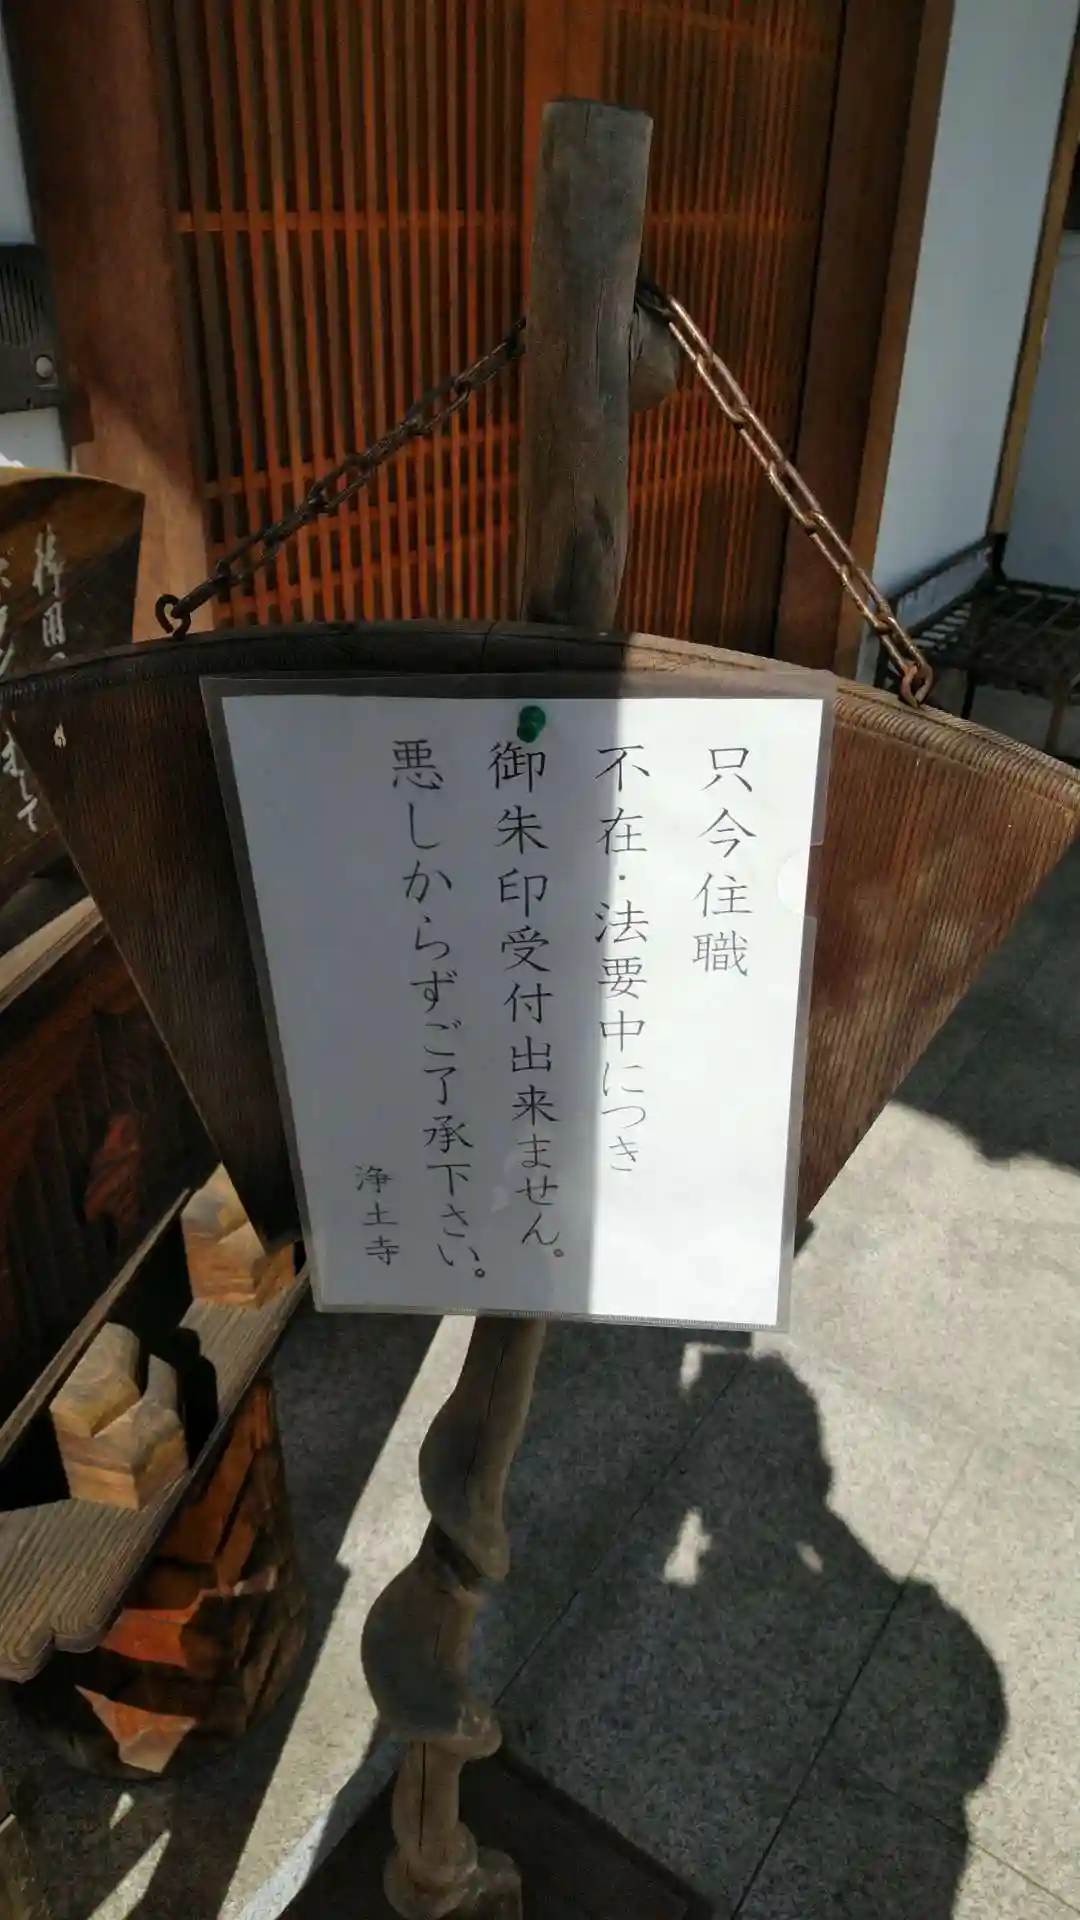 只今住職
不在・法要中につき
御朱印受付出来ません。
悪しからずご了承下さい。
浄土寺